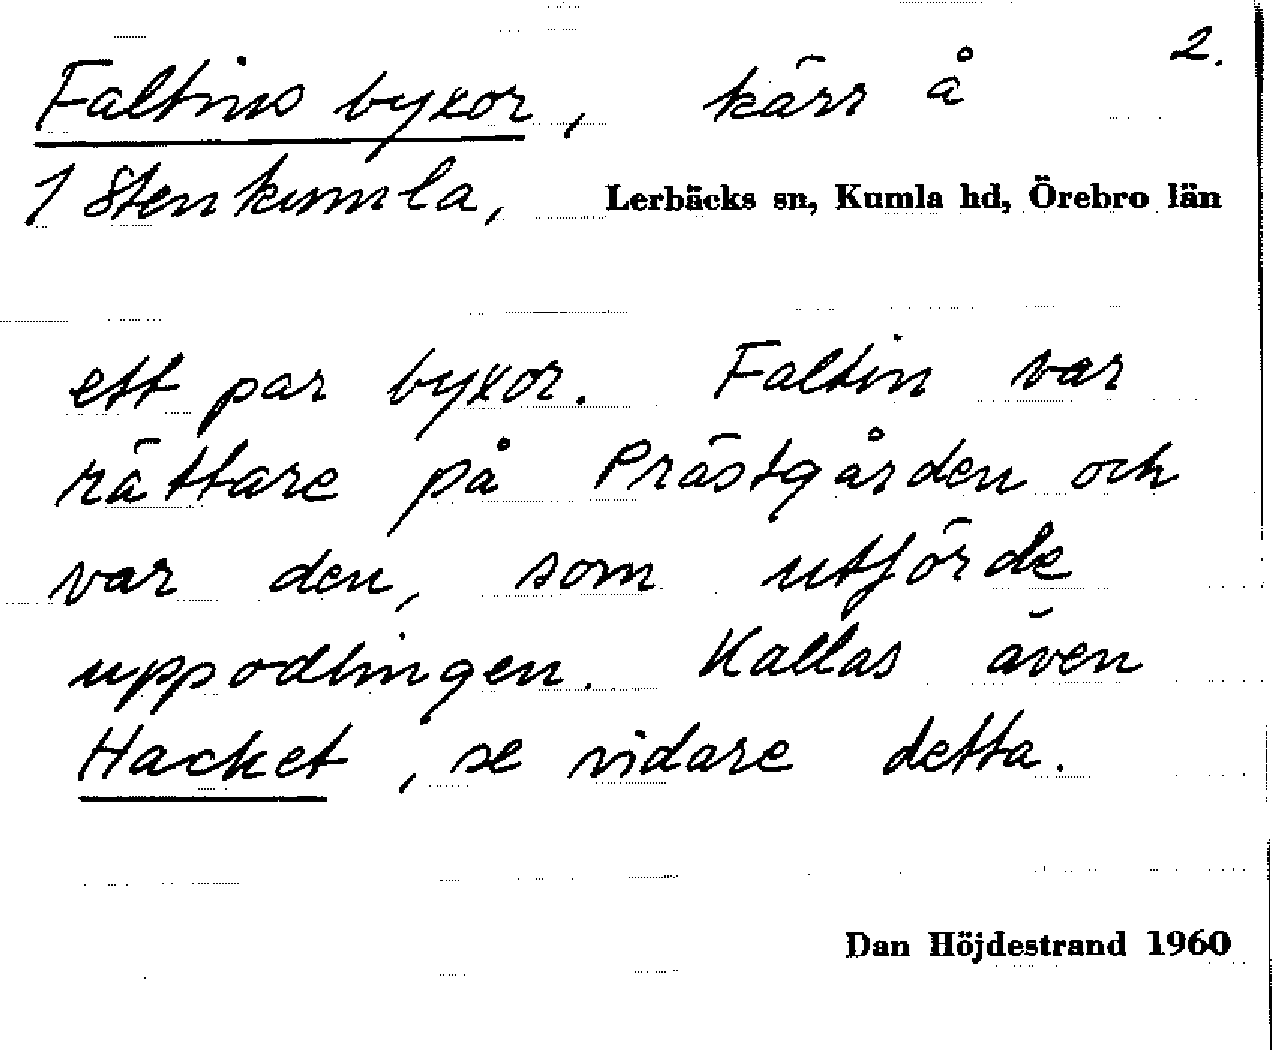 2.
Faltins byxor, kärr å
1 Stenkumla, Lerbäcks sn, Kumla hd, Örebro län
ett par byxor. Faltin var
rättare på Prästgården och
var den, som utförde
uppodlingen. Kallas även
Hacket, se vidare detta.
Dan Höjdestrand 1960